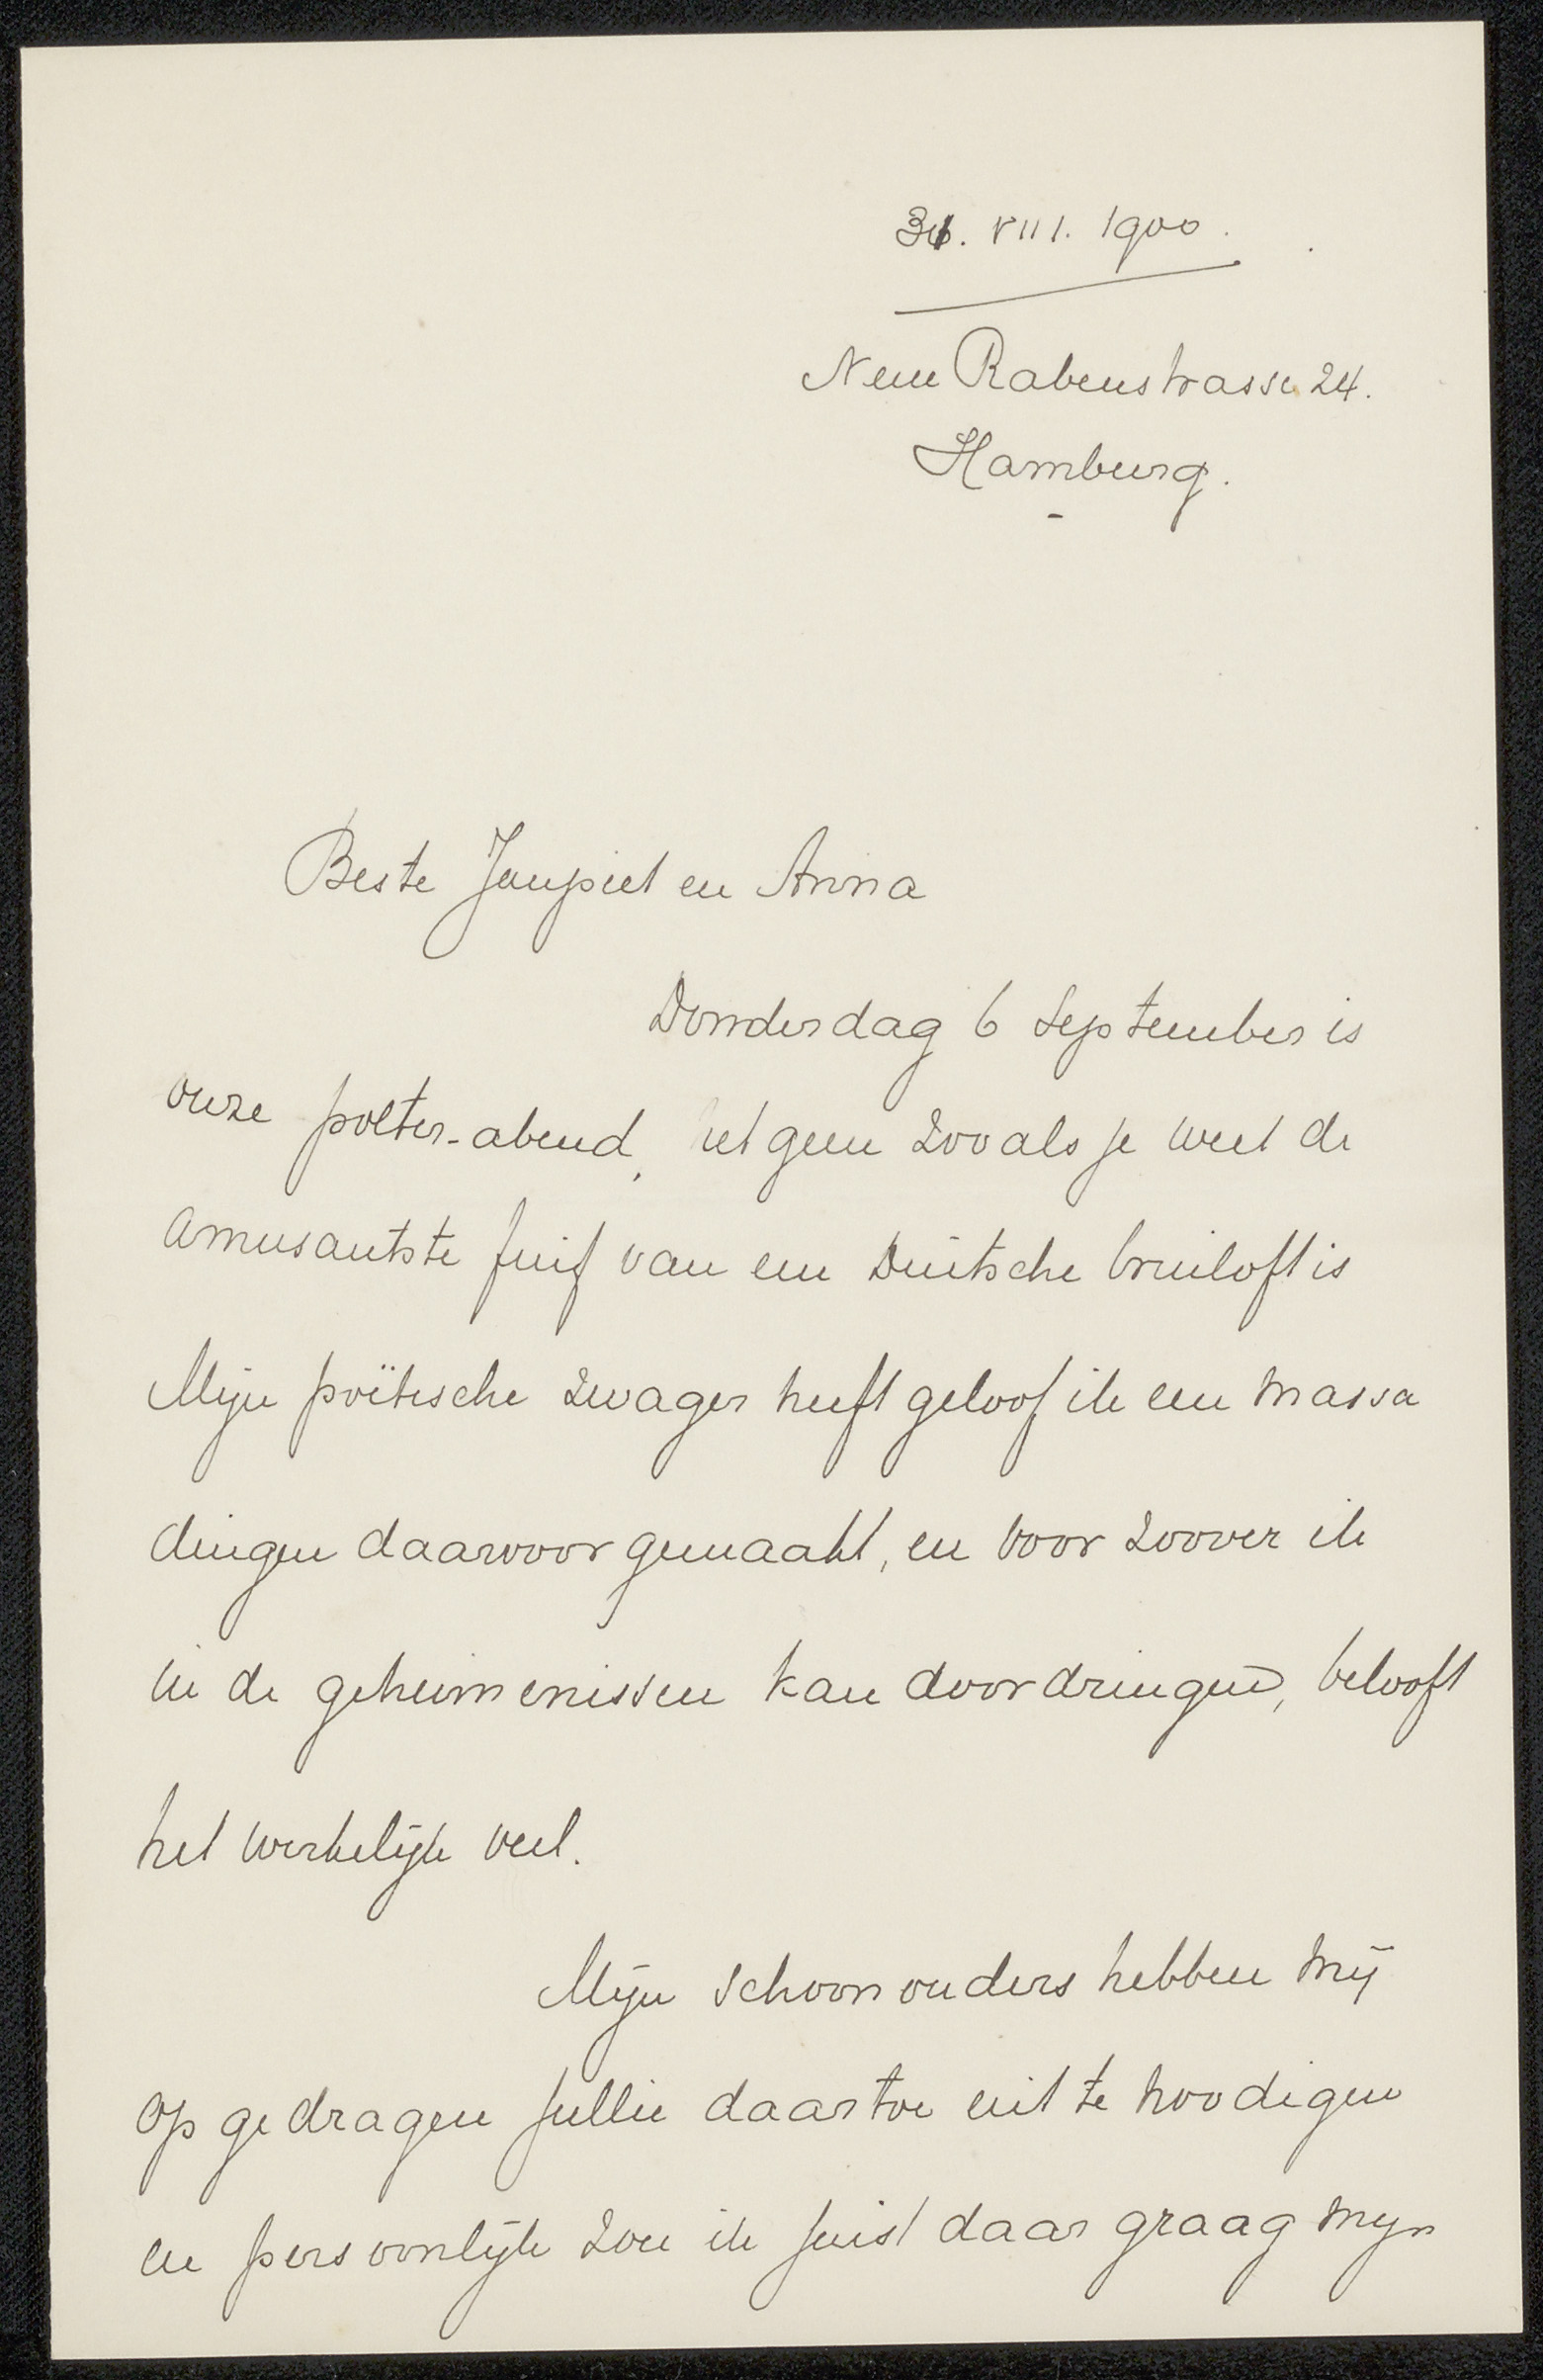 31. VIII. 1900.
Neue Rabenstrasse 24.
Hamburg.
Beste Janpiet en Anna
Donderdag 6 September is
onze polter-abend, hetgeen zooals je weet de
amusantste fuif van een Duitsche bruiloft is
Mijn poëtische zwager heeft geloof ik een massa
dingen daarvoor gemaakt, en voor zoover ik
in de geheimenissen kan doordringen, belooft
het werkelijk veel.
Mijn schoonouders hebben mij
opgedragen jullie daartoe uit te noodigen
en persoonlijk zou ik juist daar graag mijn